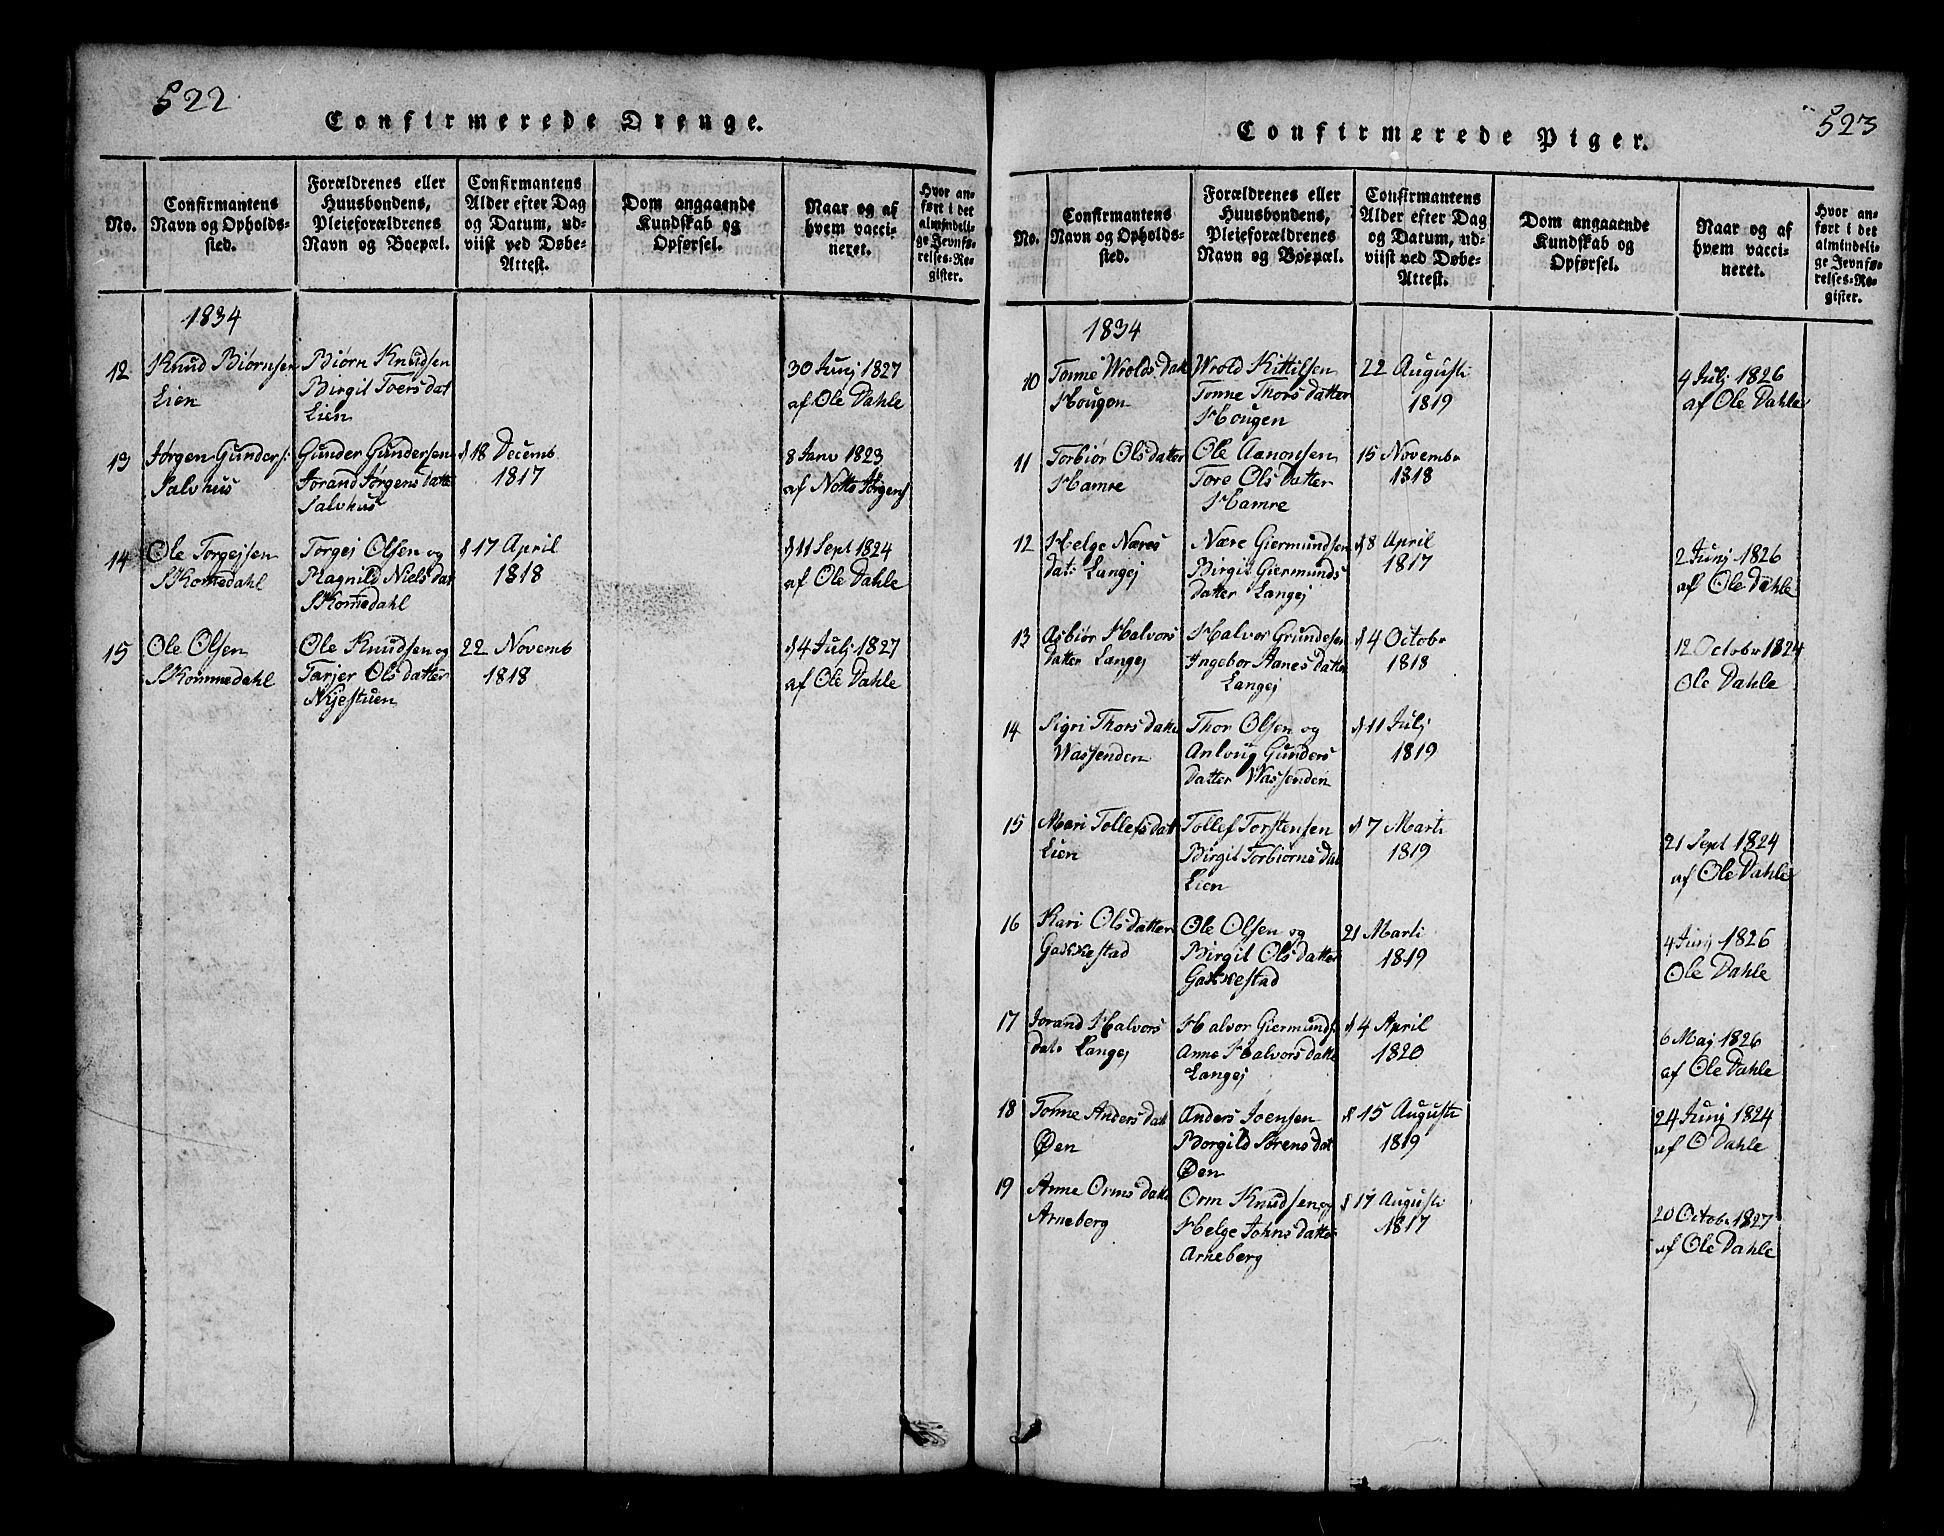 522
Confirmerede Drenge.
No.
Confirmantens
Navn og Opholds-
sted.
Forældrenes eller
Huusbondens,
Pleieforældrenes
Navn og Boepæl.
Confirmantens
Alder efter Dag
og Datum, ud-
viist ved Døbe-
Attest.
Dom angaaende
Kundskab og
Opførsel.
Naar og af
hvem vacci-
neret.
Hvor an-
ført i det
almindeli-
ge Jevnfø-
relses-Re-
gister.
1834
12
Knud Biørnsen
Lien
Biørn Knudsen
Birgit Toersdat
Lien
30 Junj 1827
af Ole Dahle
13
Jørgen Gunders:
Salvhus
Gunder Gundersen
Jorand Jørgensdatte
Salvhus
d 18 Decemb
1817
8 Janv 1823
af Notto Jørgens
14
Ole Torgejsen
Skomedahl
Torgej Olsen og
Ragnild Nielsdat
Skomedahl
d 17 April
1818
d 11 Sept 1824
af Ole Dahle
15
Ole Olsen
Skommedahl
Ole Knudsen og
Tarjer Olsdatter
Nijestuen
22 Novemb
1818
d 4 Julj 1827
af Ole Dahle
523
Confirmerede Piger.
No.
Confirmantens
Navn og Opholds-
sted.
Forældrenes eller
Huusbondens,
Pleieforældrenes
Navn og Boepæl.
Confirmantens
Alder efter Dag
og Datum, ud-
viist ved Døbe-
Attest.
Dom angaaende
Kundskab og
Opførsel.
Naar og af
hvem vacci-
neret.
Hvor an-
ført i det
almindeli-
ge Jevnfø-
relses-Re-
gister.
1834
10
Tonne Wroldsdatt
Hougen
Wrold Kittilsen
Tonne Thorsdatter
Hougen
22 Augusti
1819
4 Julj 1826
af Ole Dahle
11
Torbiør Olsdatter
Hamre
Ole Aanonsen
Tore Olsdatter
Hamre
15 Novembr
1818
12
Helge Næres
dat: Langej
Nære Giermundsen
Birgit Giermunds
datter Langej
d 8 April
1817
2 Junj 1826
af Ole Dahle
13
Asbiør Halvors
datter Langej
Halvor Grundesen
Ingebor Aanesdatter
Langej
d 4 Octobr
1818
12 October 1824
Ole Dahle
14
Sigri Thorsdatte
Wassenden
Thor Olsen og
Anlaug Gunders
datter Wassenden
d 11 Julj
1819
15
Mari Tollefsdat
Lien
Tollef Torstensen
Birgit Torbiørnsdat
Lien
d 7 Marti
1819
21 Sept 1824
af Ole Dahle
16
Kari Olsdatter
Gakkestad
Ole Olsen og
Birgit Olsdatter
Gakkestad
21 Marti
1819
4 Junj 1826
Ole Dahle
17
Jorand Halvors
dat: Langej
Halvor Giermunds
Anne Halvorsdatte
Langej
d 4 April
1820
6 Maj 1826
af Ole Dahle
18
Tonne Andersdat
Øen
Anders Joensen
Borgild Sørensdat
Øen
d 15 Augusti
1819
24 Junj 1824
af O Dahle
19
Anne Ormsdatte
Arneberg
Orm Knudsen og
Helge Johnsdatter
Arneberg
d 17 Augusti
1817
20 Octobr 1827
af Ole Dahle